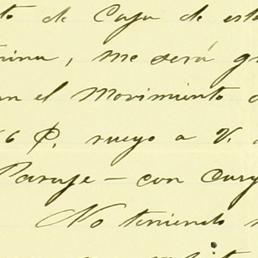 to de Caja de est
rina, me será g
n el Movimiento d
66 P. ruego a V.
Paraje – con
No teniendo